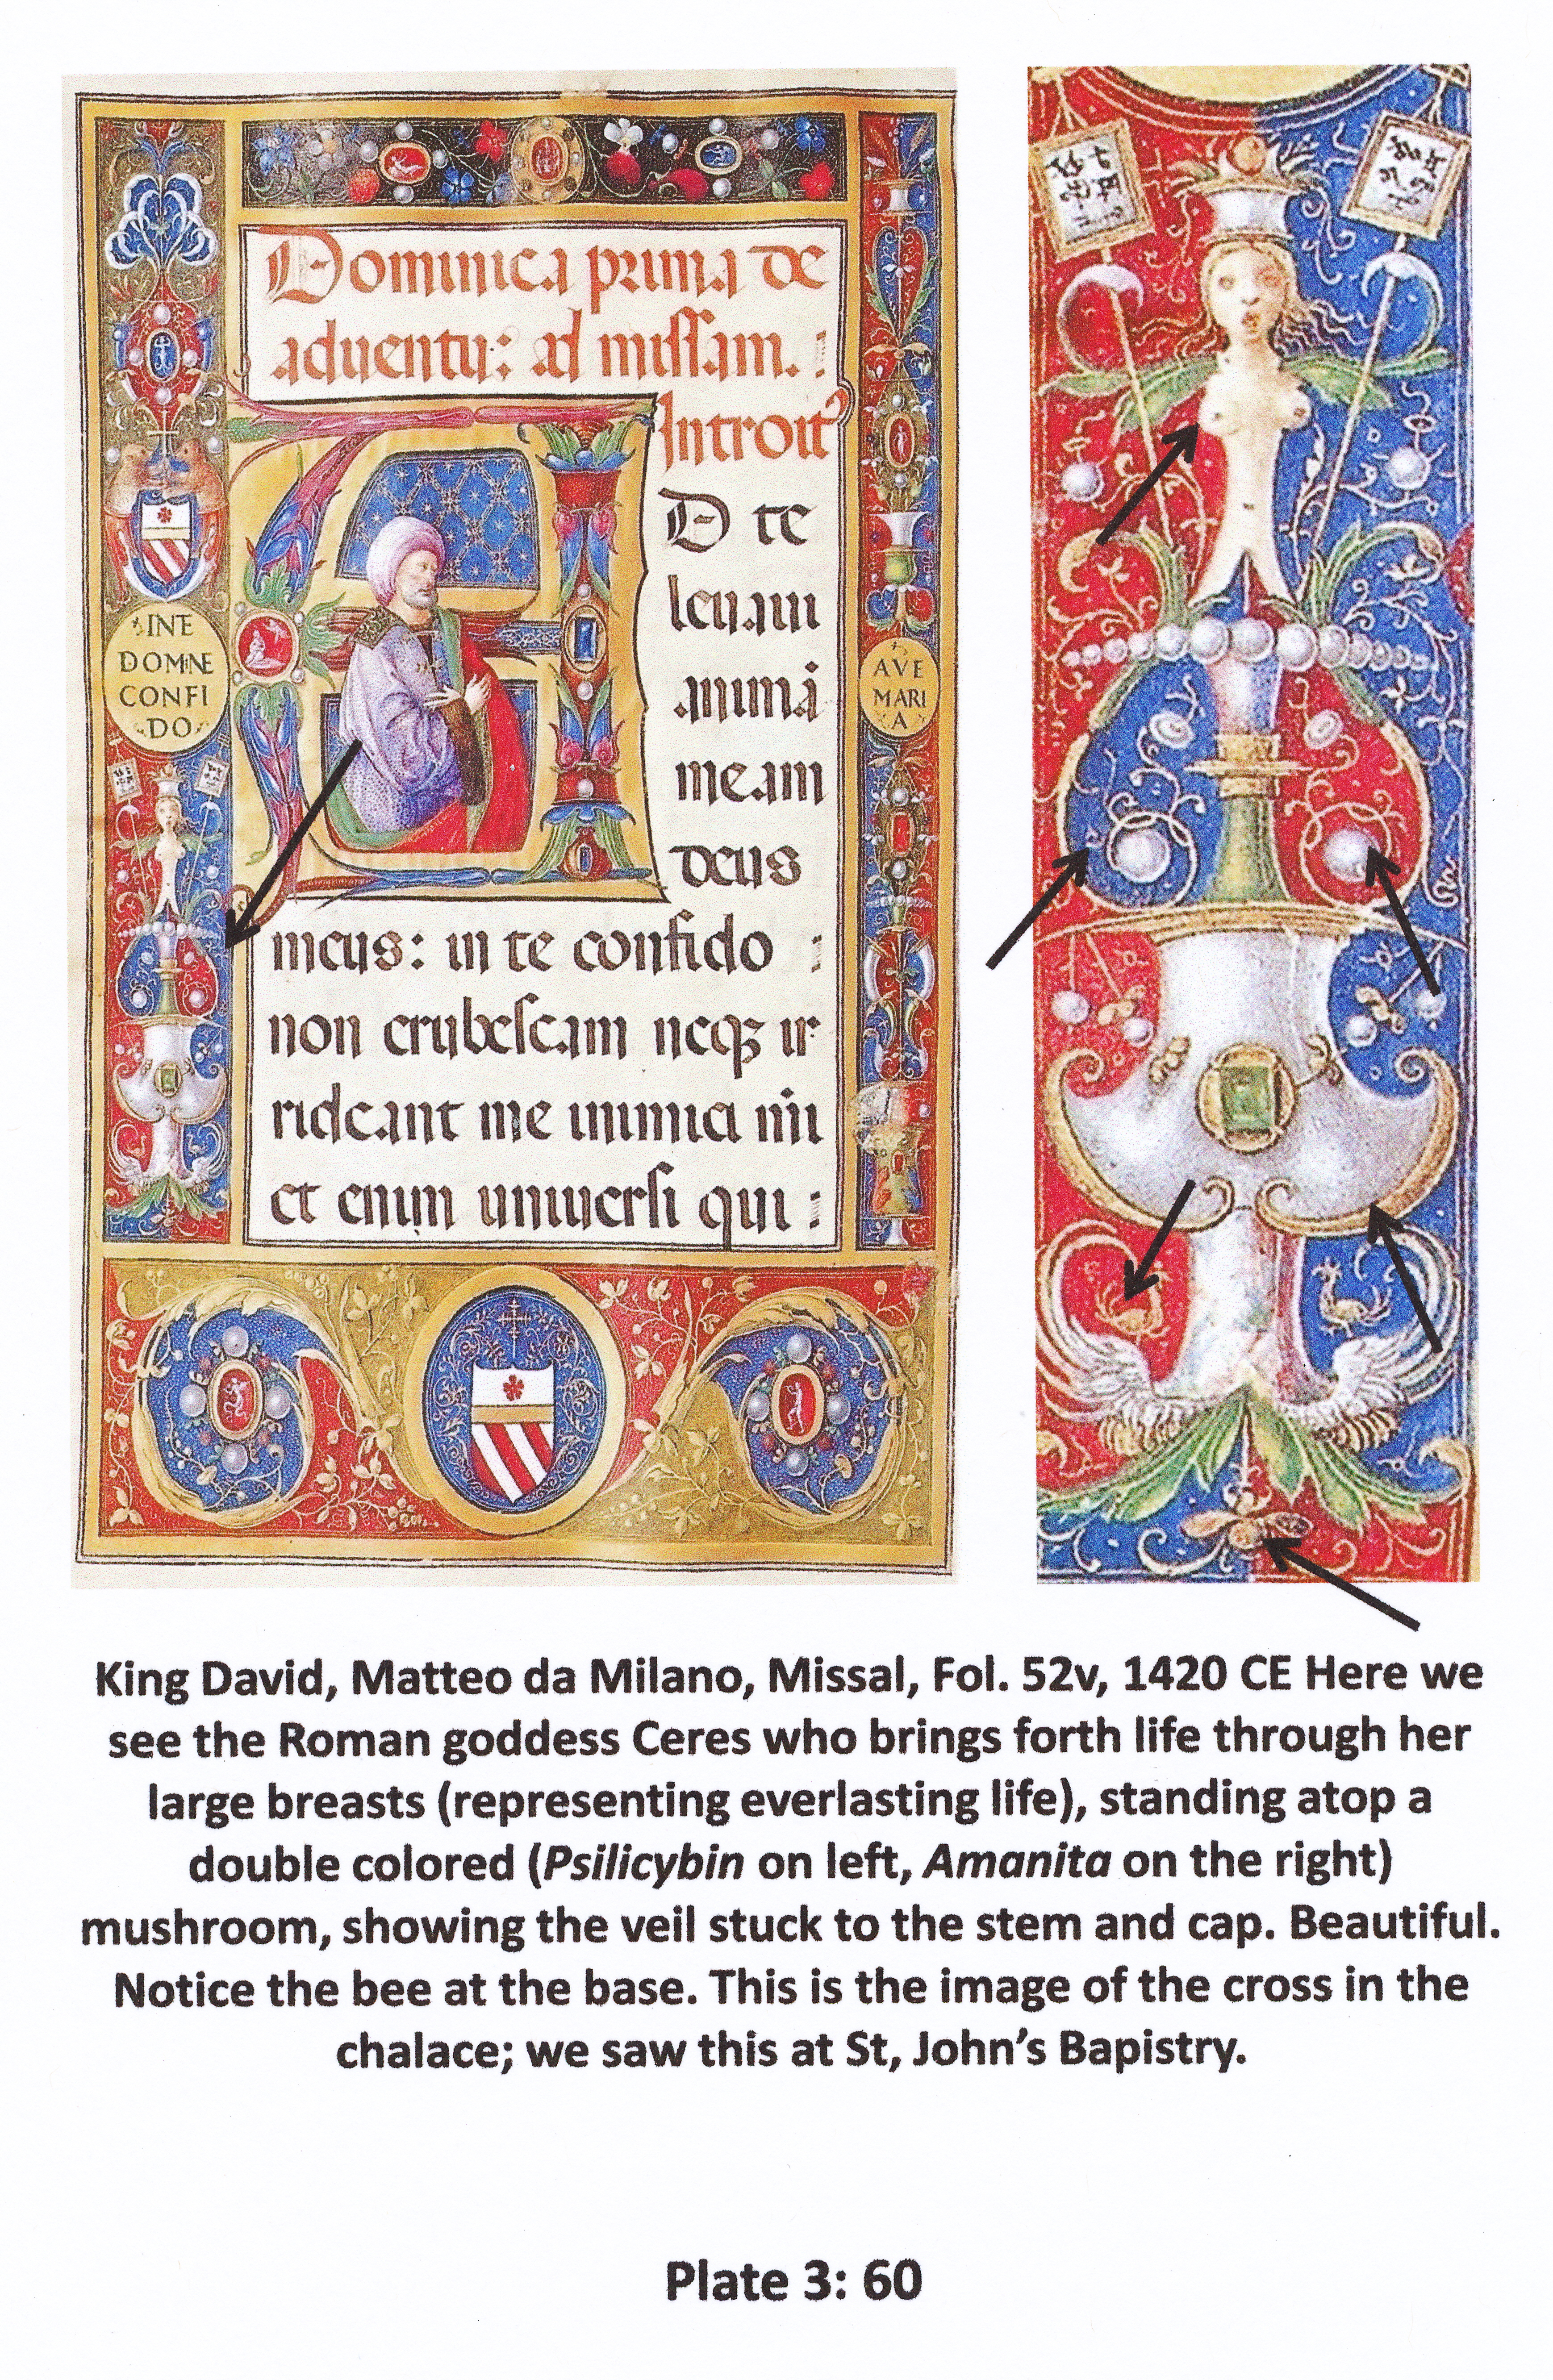 Dominica prima de
aduentu: ad missam.
Introit
D te
leuaui
animā
meam
deus
meus: in te confido
non erubescam neqz ir
rideant me inimici mīi
et enim uniuersi qui
INTE
DOMINE
CONFI
DO
AVE
MARI
A
King David, Matteo da Milano, Missal, Fol. 52v, 1420 CE Here we
see the Roman goddess Ceres who brings forth life through her
large breasts (representing everlasting life), standing atop a
double colored (Psilicybin on left, Amanita on the right)
mushroom, showing the veil stuck to the stem and cap. Beautiful.
Notice the bee at the base. This is the image of the cross in the
chalace; we saw this at St, John's Bapistry.
Plate 3: 60